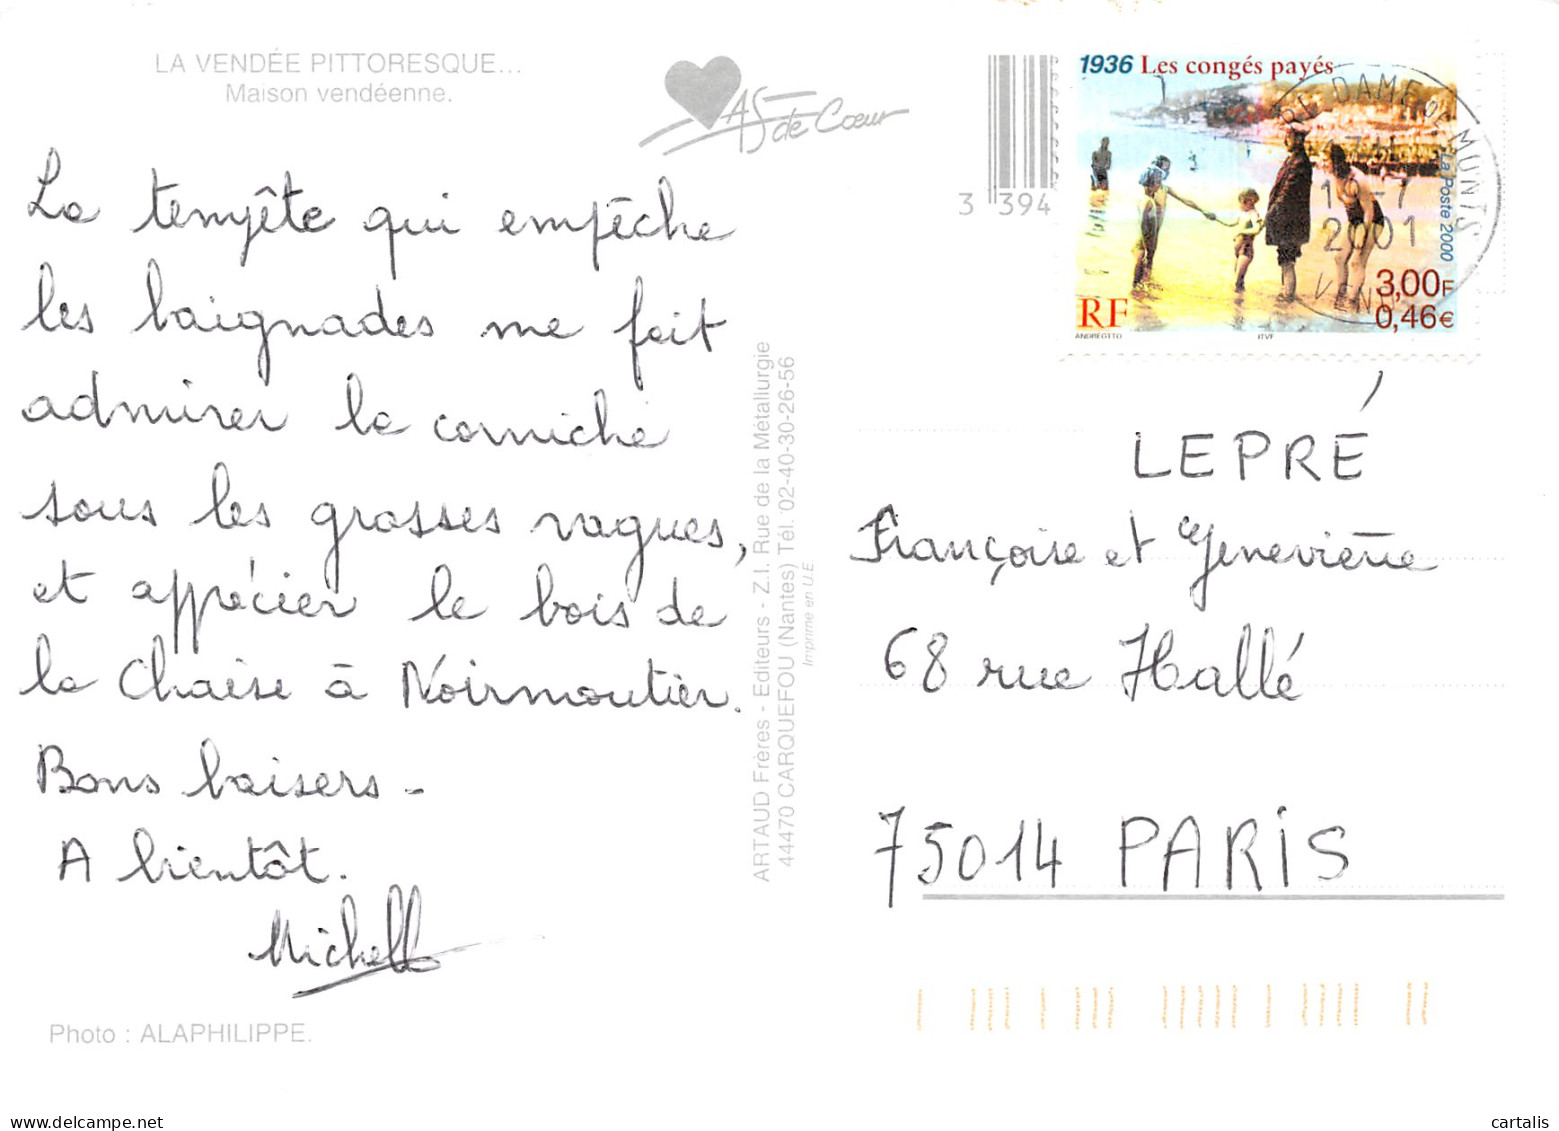 LA VENDÉE PITTORESQUE...
Maison vendéenne.
As de Cœur
3 394
1936 Les congés payés
La Poste 2000
3,00F
0,46€
RF
ANDREOTTO
ITVF
DAME DE MONTS
2001
La tempête qui empêche
les baignades me fait
admirer la corniche
sous les grosses vagues,
et apprécier le bois de
la Chaise à Noirmoutier.
Bons baisers -
A bientôt.
Michelle
Photo : ALAPHILIPPE.
ARTAUD Frères - Editeurs - Z.I. Rue de la Métallurgie
44470 CARQUEFOU (Nantes) Tél. 02-40-30-26-56
Imprimé en U.E
LEPRÉ
Françoise et Geneviève
68 rue Hallé
75014 PARIS
cartalis